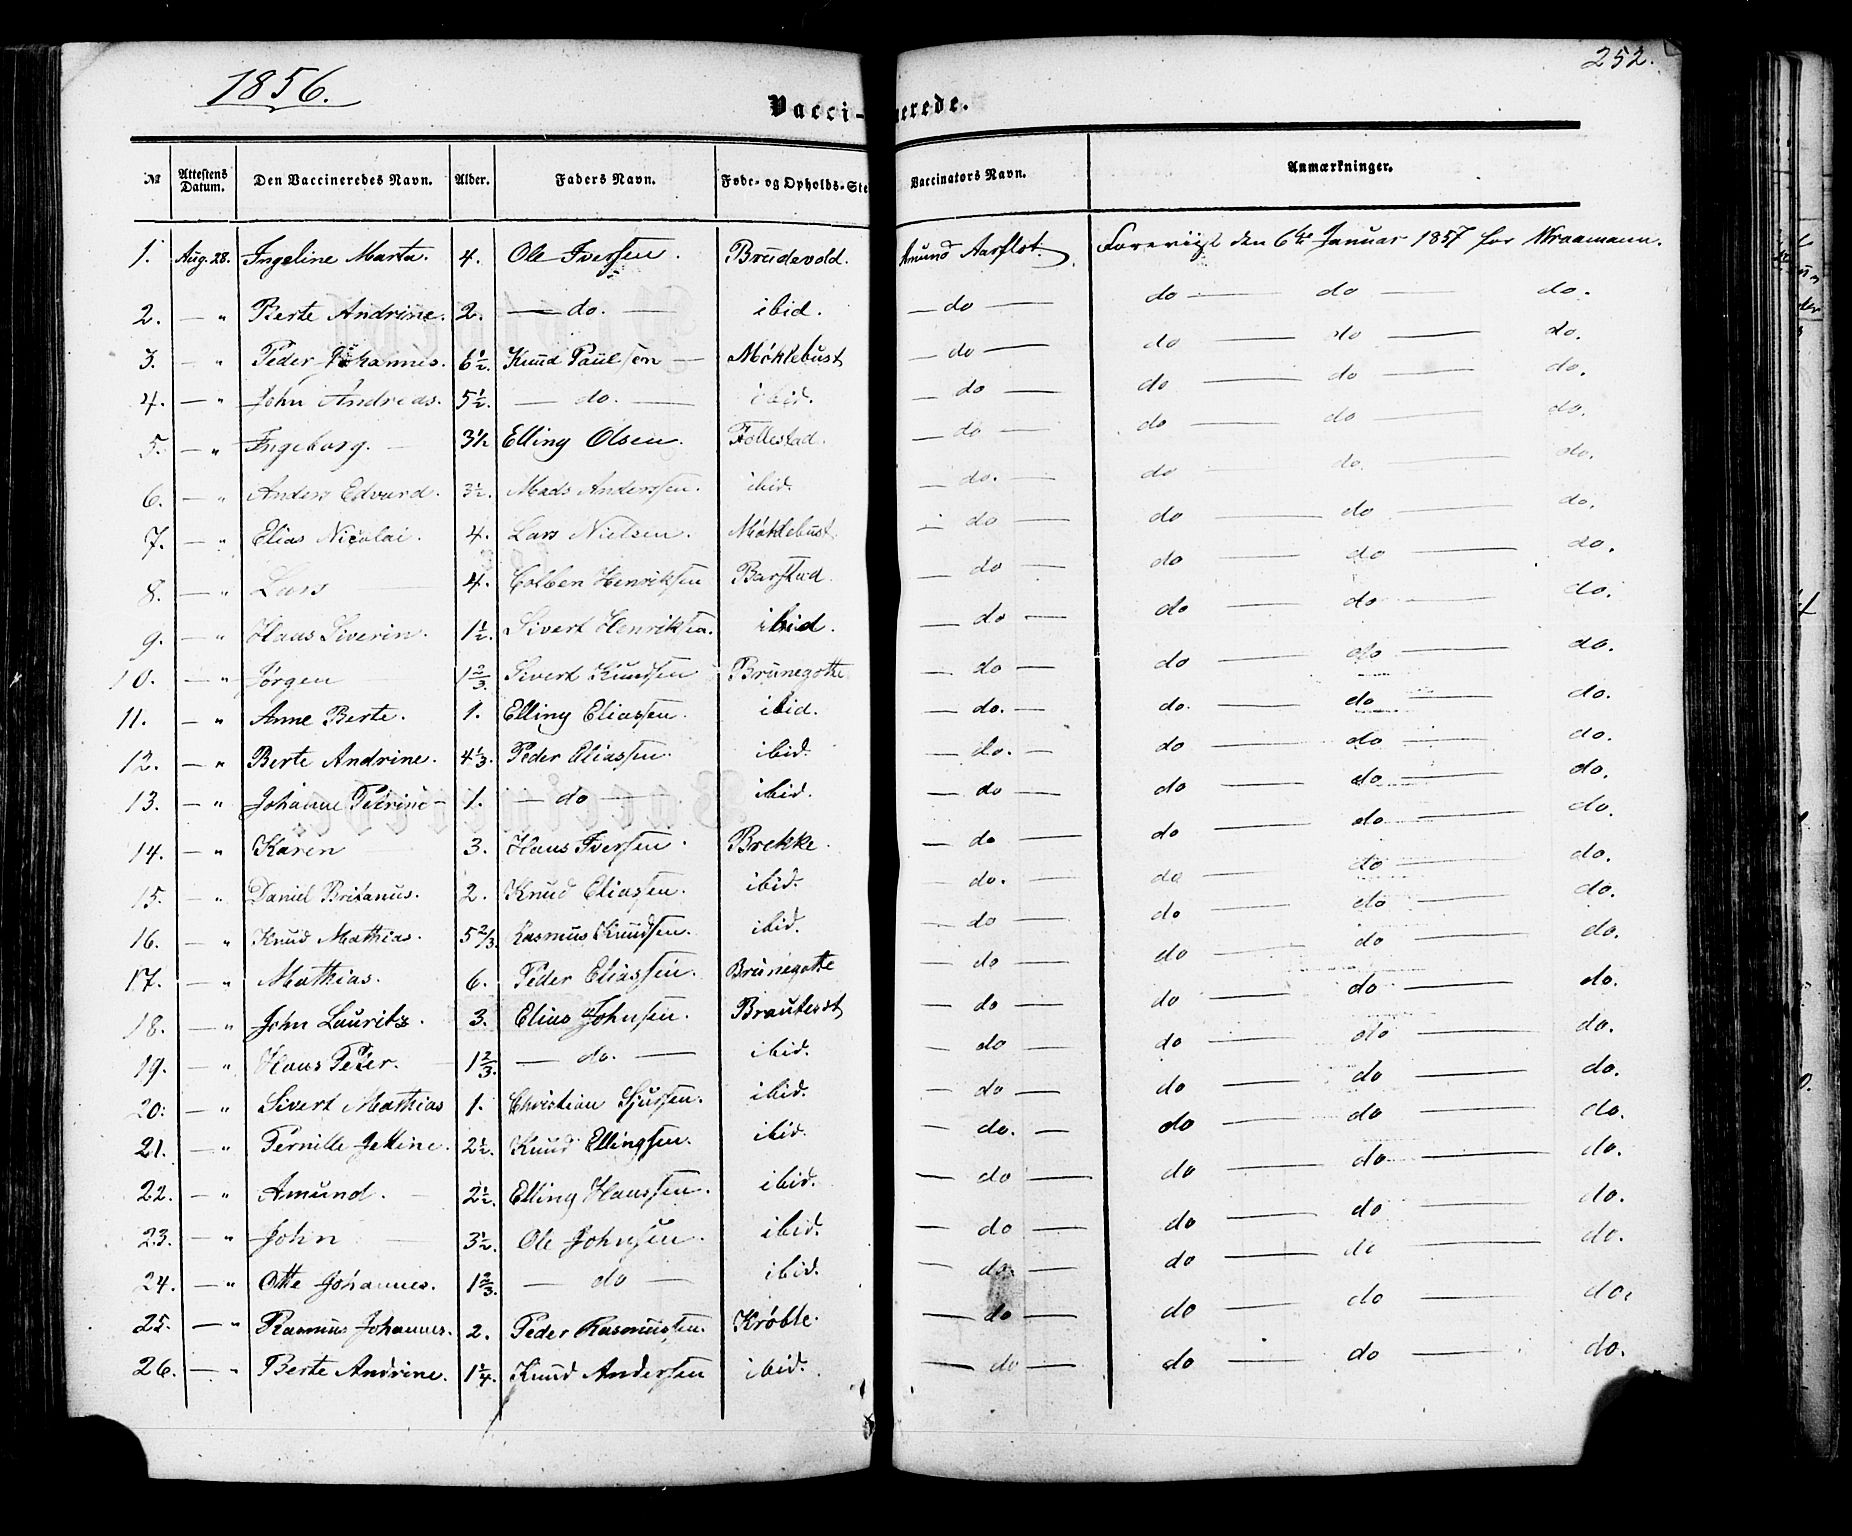 252.
1856.
Vacci-nerede.
№ Attestens Datum. Den Vaccineredes Navn. Alder. Faders Navn. Føde- og Opholds-Ste Vaccinators Navn. Anmærkninger.
1. Aug. 28. Ingeline Marta. 4. Ole Iversen. Brudevold. Amund Aarflot. Foreviist den 6te Januar 1857 for Kraamann.
2. — " Berte Andrine. 2. — do. — ibid. — do — do — do — do.
3. — " Peder Johannes. 6½. Knud Paulsen — Møklebust — do — do — do — do.
4. — " John Andreas. 5½. — do. — ibid. — do — do — do — do.
5. — " Ingeborg. — 3½ Elling Olsen. Follestad. — do — do — do — do.
6. — " Anders Edvard. 3½. Mads Anderssen. ibid. — do. — do — do. — do.
7. — " Elias Nicolai. 4. Lars Nielsen. Møklebust. — do — do — do — do.
8. — " Lars — 4. Colben Henriksen Barstad. — do — do — do — do.
9. — " Hans Siverin. 1½. Sivert Henriksen. ibid. — do — do — do — do.
10. — " Jørgen — 1⅔. Sivert Knudsen Brunegotte — do — do — do — do.
11. — " Anne Berte. 1. Elling Eliassen. ibid. — do. — do. — do — do.
12. — " Berte Andrine. 4⅓. Peder Eliassen. ibid. — do. — do — do — do.
13. — " Johanne Petrine — 1. — do — ibid. — do — do — do — do.
14. — " Karen 3. Hans Iversen. Brekke. — do — do — do — do.
15. — " Daniel Britanus. 2. Knud Eliassen. ibid. — do. — do — do — do.
16. — " Knud Mathias. 5⅔. Rasmus Knudsen. ibid. — do — do — do — do.
17. — " Mathias. 6. Peder Eliassen. Brunegotte — do — do — do — do.
18. — " John Lauritz. 3. Elias Johnsen. Brauteset — do — do — do — do.
19. — " Hans Peter. 1⅔. — do. — ibid. — do — do — do — do.
20. — " Sivert Mathias 1. Christian Sjursen. ibid. — do — do — do — do.
21. — " Pernille Jettine. 2½. Knud Ellingsen. ibid. — do. — do — do — do.
22. — " Amund. — 2½. Elling Hanssen. ibid. — do — do — do — do.
23. — " John — 3½. Ole Johnsen. ibid. — do — do — do — do.
24. — " Otte Johannes. 1⅔. — do — ibid. — do. — do — do — do.
25. — " Rasmus Johannes. 2. Peder Rasmussen. Krøble. — do — do — do — do.
26. — " Berte Andrine. 1¼. Knud Andersen ibid. — do — do — do — do.